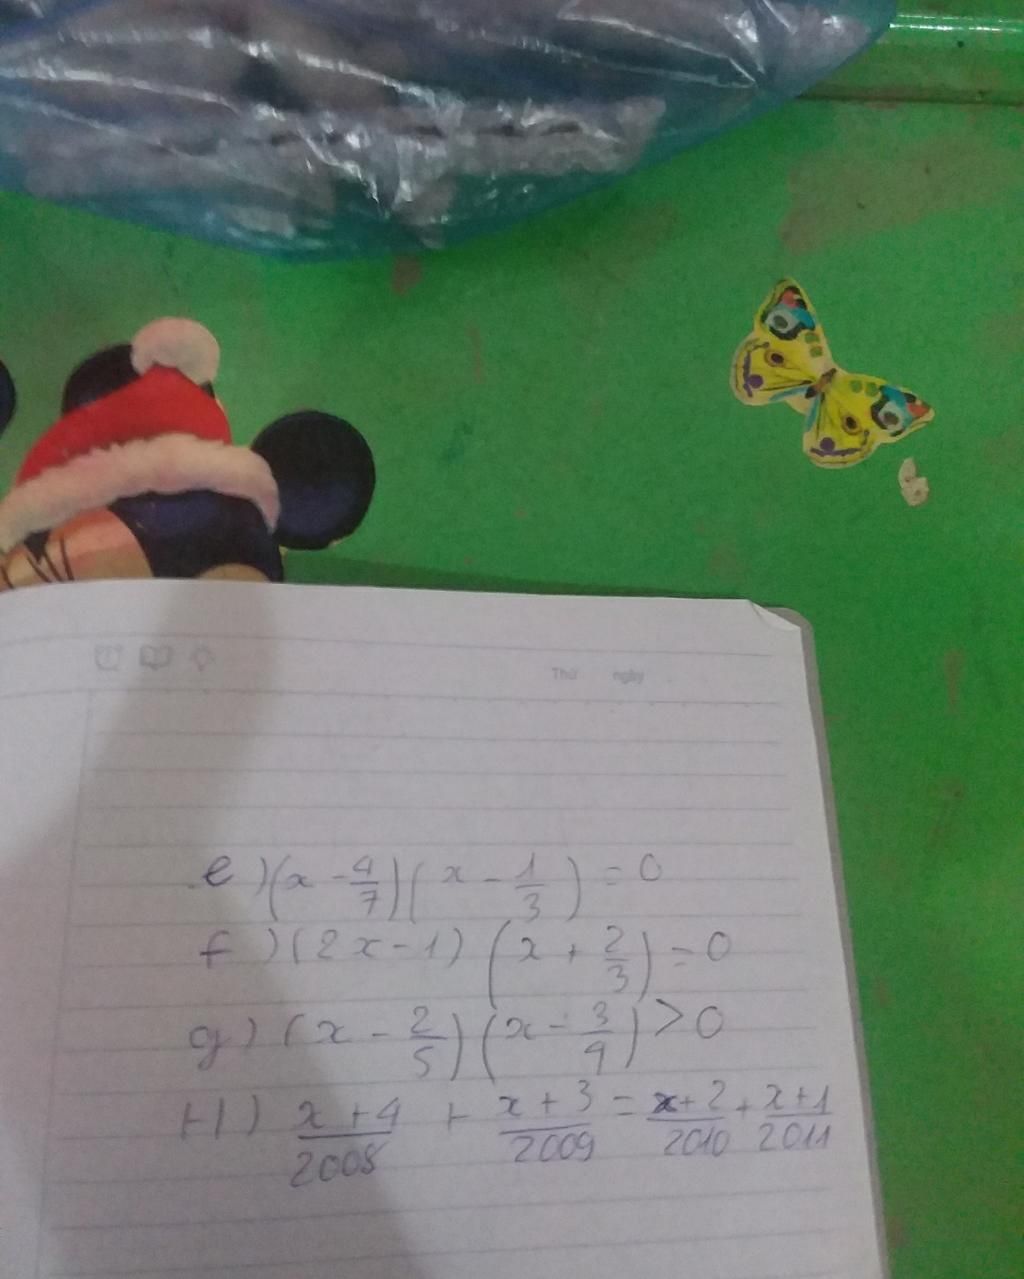 Thứ ngày
e) (x - 4/7)(x - 1/3) = 0
f) (2x - 1) (x + 2/3) = 0
g) (x - 2/5)(x - 3/4) > 0
H) x + 4/2008 + x + 3/2009 = x + 2/2010 + x + 1/2011